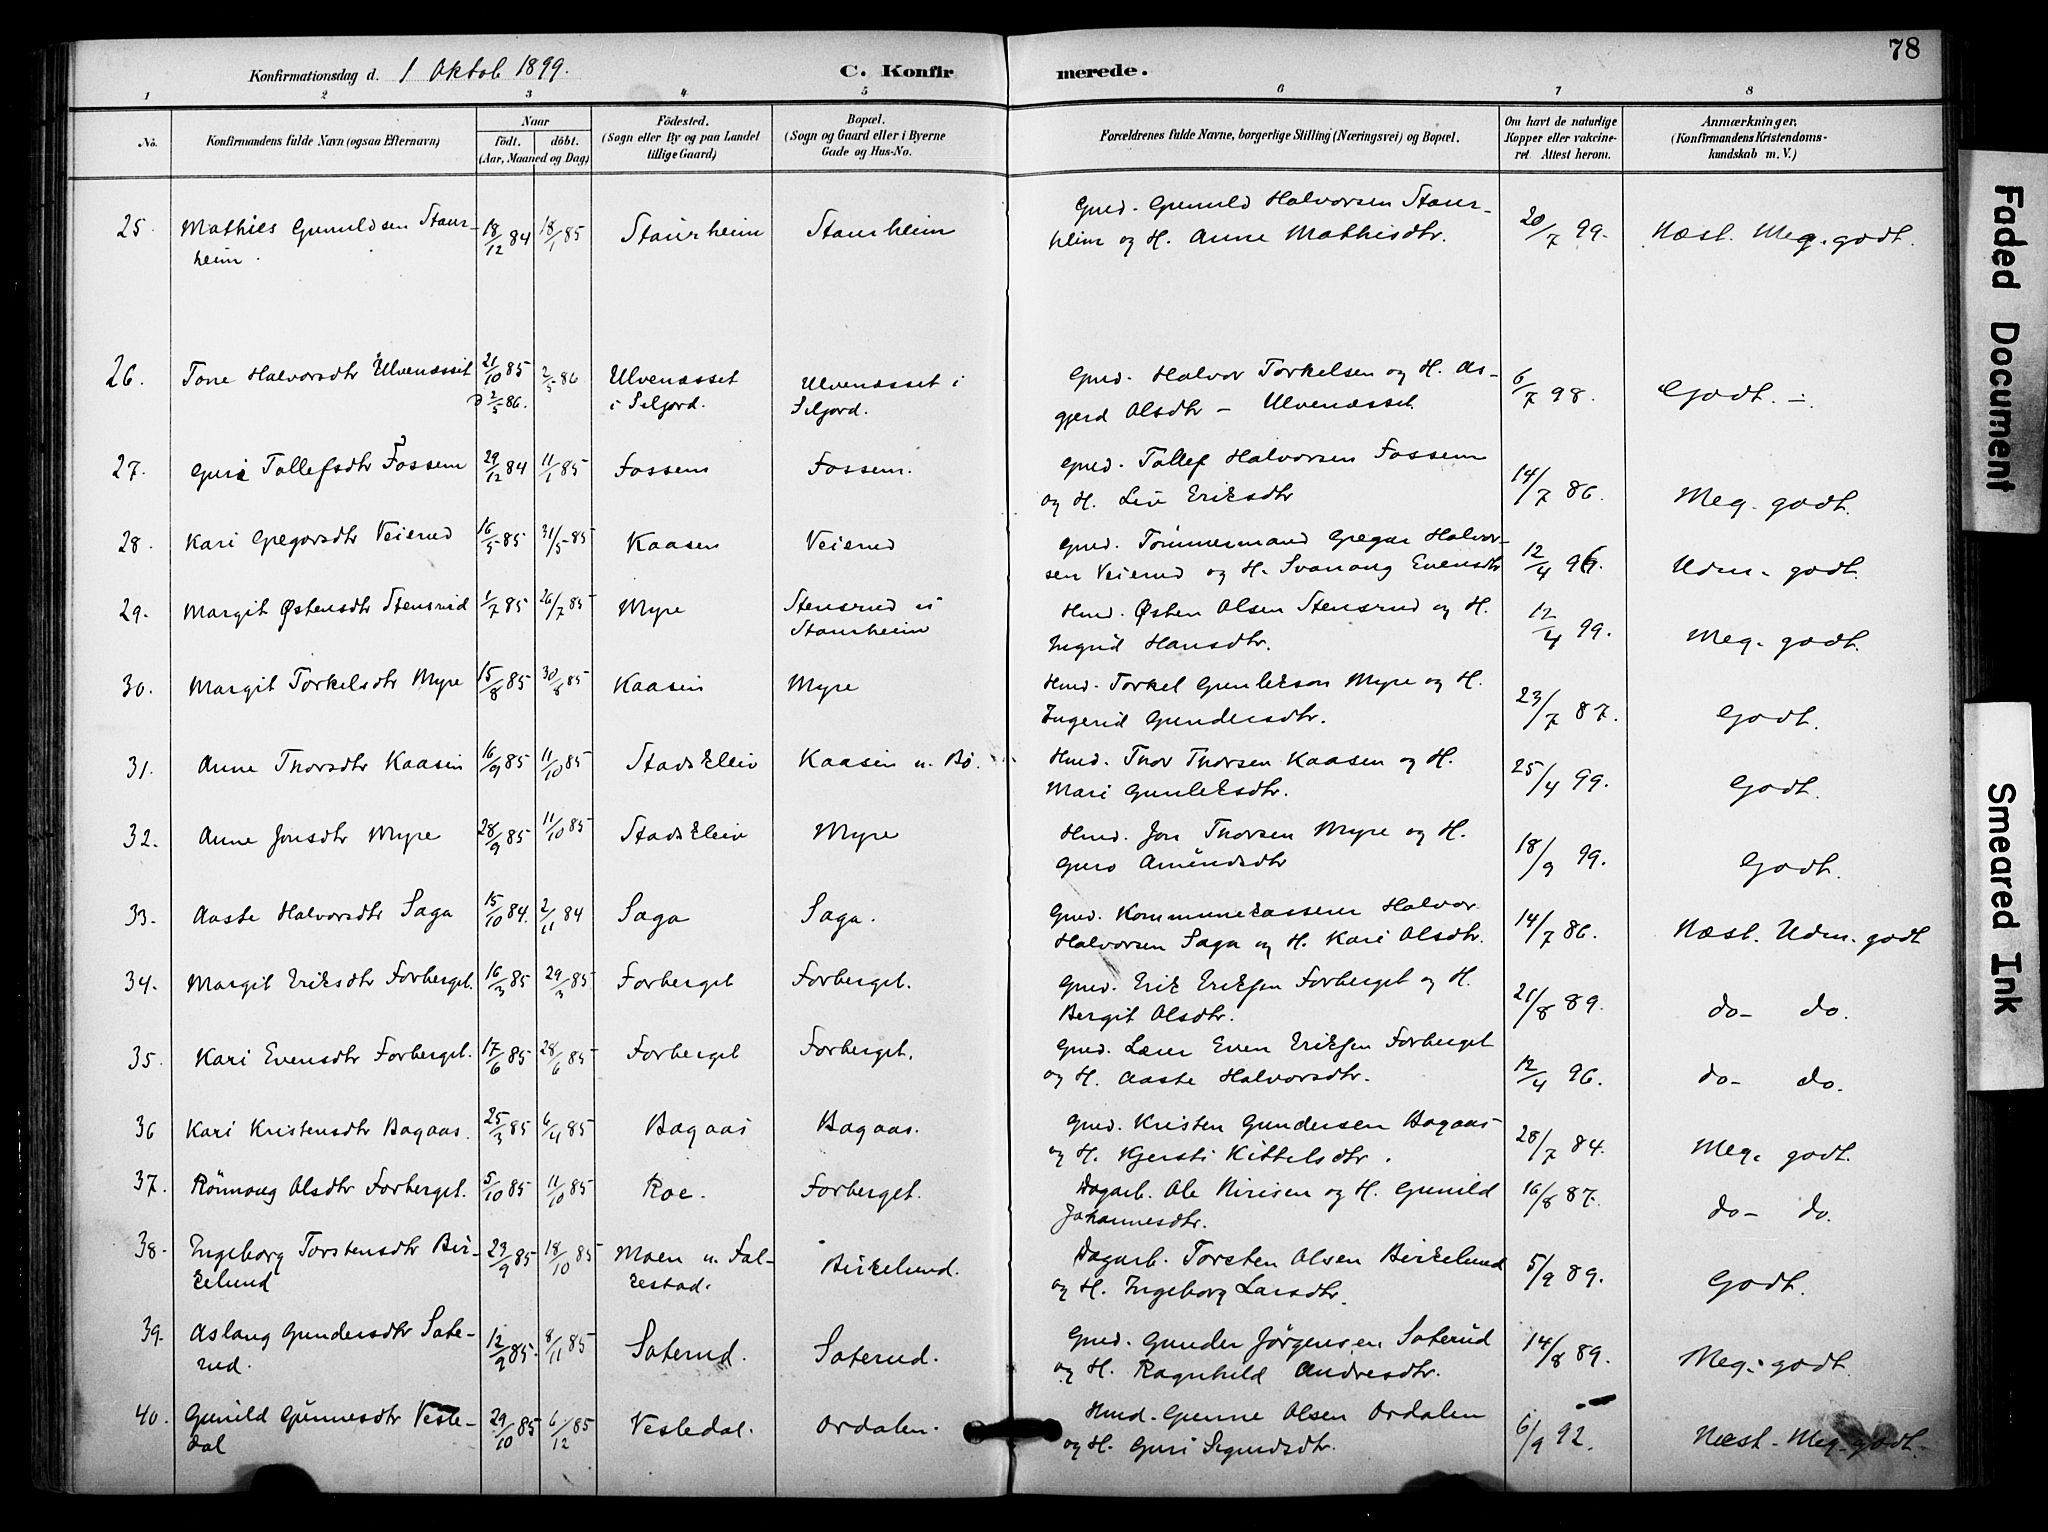 78
Konfirmationsdag d. 1 Oktob 1899. C. Konfirmerede.
1 2 3 4 5 6 7 8
No. Konfirmandens fulde Navn (ogsaa Efternavn) Naar født. døbt. (Aar, Maaned og Dag) Fødested. (Sogn eller By og paa Landet tillige Gaard) Bopæl. (Sogn og Gaard eller i Byerne Gade og Hus-No. Forældrenes fulde Navne, borgerlige Stilling (Næringsvei) og Bopæl. Om havt de naturlige Kopper eller vakcineret Attest herom. Anmærkninger. (Konfirmandens Kristendomskundskab m. V.)
25. Mathies Gunuldsen Staur- 18/12 84 18/1 85 Staurheim Staurheim Gmd. Gunuld Halvorsen Staur- 20/7 99. Næst. Meg. godt.
heim. heim og H. Anne Mathisdtr.
26. Tone Halvorsdtr Ulvenæsset 21/10 85 2/5 86 Ulvenæsset Ulvenæsset i Gmd. Halvor Torkelsen og H. As- 6/7 98. Godt. -.
D 2/5 86. i Seljord. Seljord. gjerd Olsdtr - Ulvenæsset.
27. Guri Tollefsdtr Fossem 29/12 84 11/1 85 Fossem Fossem. Gmd. Tollef Halvorsen Fossem 14/7 86. Meg. godt.
og H. Liv Eriksdtr
28. Kari Gregarsdtr Veierud 16/5 85 31/5 85 Kaasen Veierud Gmd. Tømmermand Gregar Halvor- 12/4 96. Udm. godt.
sen Veierud og H. Svanaug Evensdtr
29. Margit Østensdtr Stensrud 1/7 85 26/7 85 Myre Stensrud u Hmd. Østen Olsen Stensrud og H. 12/4 99. Meg. godt.
Staurheim Ingrid Hansdtr.
30. Margit Torkelsdtr Myre 15/8 85 30/8 85 Kaasin Myre Hmd. Torkel Gunlekson Myre og H. 23/7 87. Godt.
Ingerid Gundersdtr.
31. Anne Thorsdtr Kaasin 16/9 85 11/10 85 Stadskleiv Kaasin u. Bø. Hmd. Thor Thorsen Kaasen og H. 25/4 99. Godt.
Mari Gunleksdtr.
32. Anne Jonsdtr Myre 28/9 85 11/10 85 Stadskleiv Myre Hmd. Jon Thorsen Myre og H. 18/9 99. Godt.
Guro Amundsdtr
33. Aaste Halvorsdtr Saga 15/10 84. 2/11 84 Saga Saga. Gmd. Kommunekasserer Halvor 14/7 86. Næst. Udm. godt
Halvorsen Saga og H. Kari Olsdtr.
34. Margit Eriksdtr Forberget. 16/3 85 29/3 85. Forberget Forberget. Gmd. Erik Eriksen Forberget og H. 21/8 89. do- do.
Bergit Olsdtr.
35. Kari Evensdtr Forberget. 17/6 85 28/6 85 Forberget Forberget. Gmd. Lærer Even Eriksen Forberget 12/4 96. do- do.
og H. Aaste Halvorsdtr.
36 Kari Kristensdtr Bagaas. 25/3 85 6/4 85 Bagaas Bagaas. Gmd. Kristen Gundersen Bagaas 28/7 84. Meg. godt.
og H. Kjersti Kittelsdtr.
37. Rönnaug Olsdtr Forberget. 5/10 85 11/10 85 Roe. Forberget. Dagarb. Ole Nirisen og H. Gunild 16/8 87. do- do.
Johannesdtr.
38. Ingeborg Torstensdtr Bir- 29/9 85 18/10 85 Moen u. Fol- Birkelund. Dagarb. Torsten Olsen Birkelund 5/9 89. Godt.
kelund kestad. og H. Ingeborg Larsdtr.
39. Aslaug Gundersdtr Sate- 12/9 85. 8/11 85 Saterud. Saterud. Gmd. Gunder Jörgensen Saterud 14/8 89. Meg. godt.
rud. og H. Ragnhild Andresdtr.
40. Gunild Gunnesdtr Vesle- 29/10 85 6/12 85 Vesledal. Ordalen. Hmd. Gunne Olsen Ordalen 6/9 92. Næst. Meg. godt.
dal og H. Guri Sigurdsdtr.
Faded Document
Smeared Ink